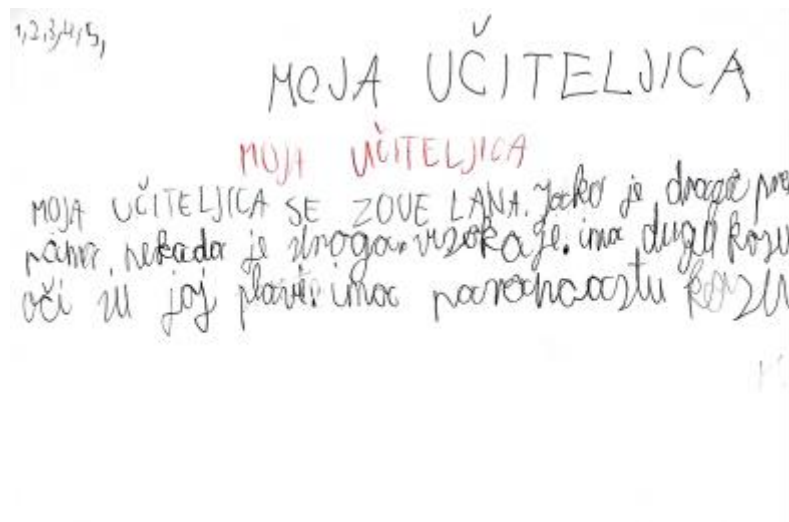 1,2,3,4,5,
MOJA UČITELJICA
MOJA UČITELJICA
MOJA UČITELJICA SE ZOVE LANA. Jako je draga
nama. nekada je stroga. visoka je. ima dugu kosu
oči su joj plave. ima narančastu kosu